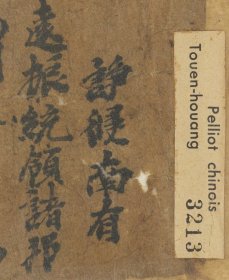 靜㝵南有
遠振統領諸邦
Pelliot chinois
Touen-houang
3213